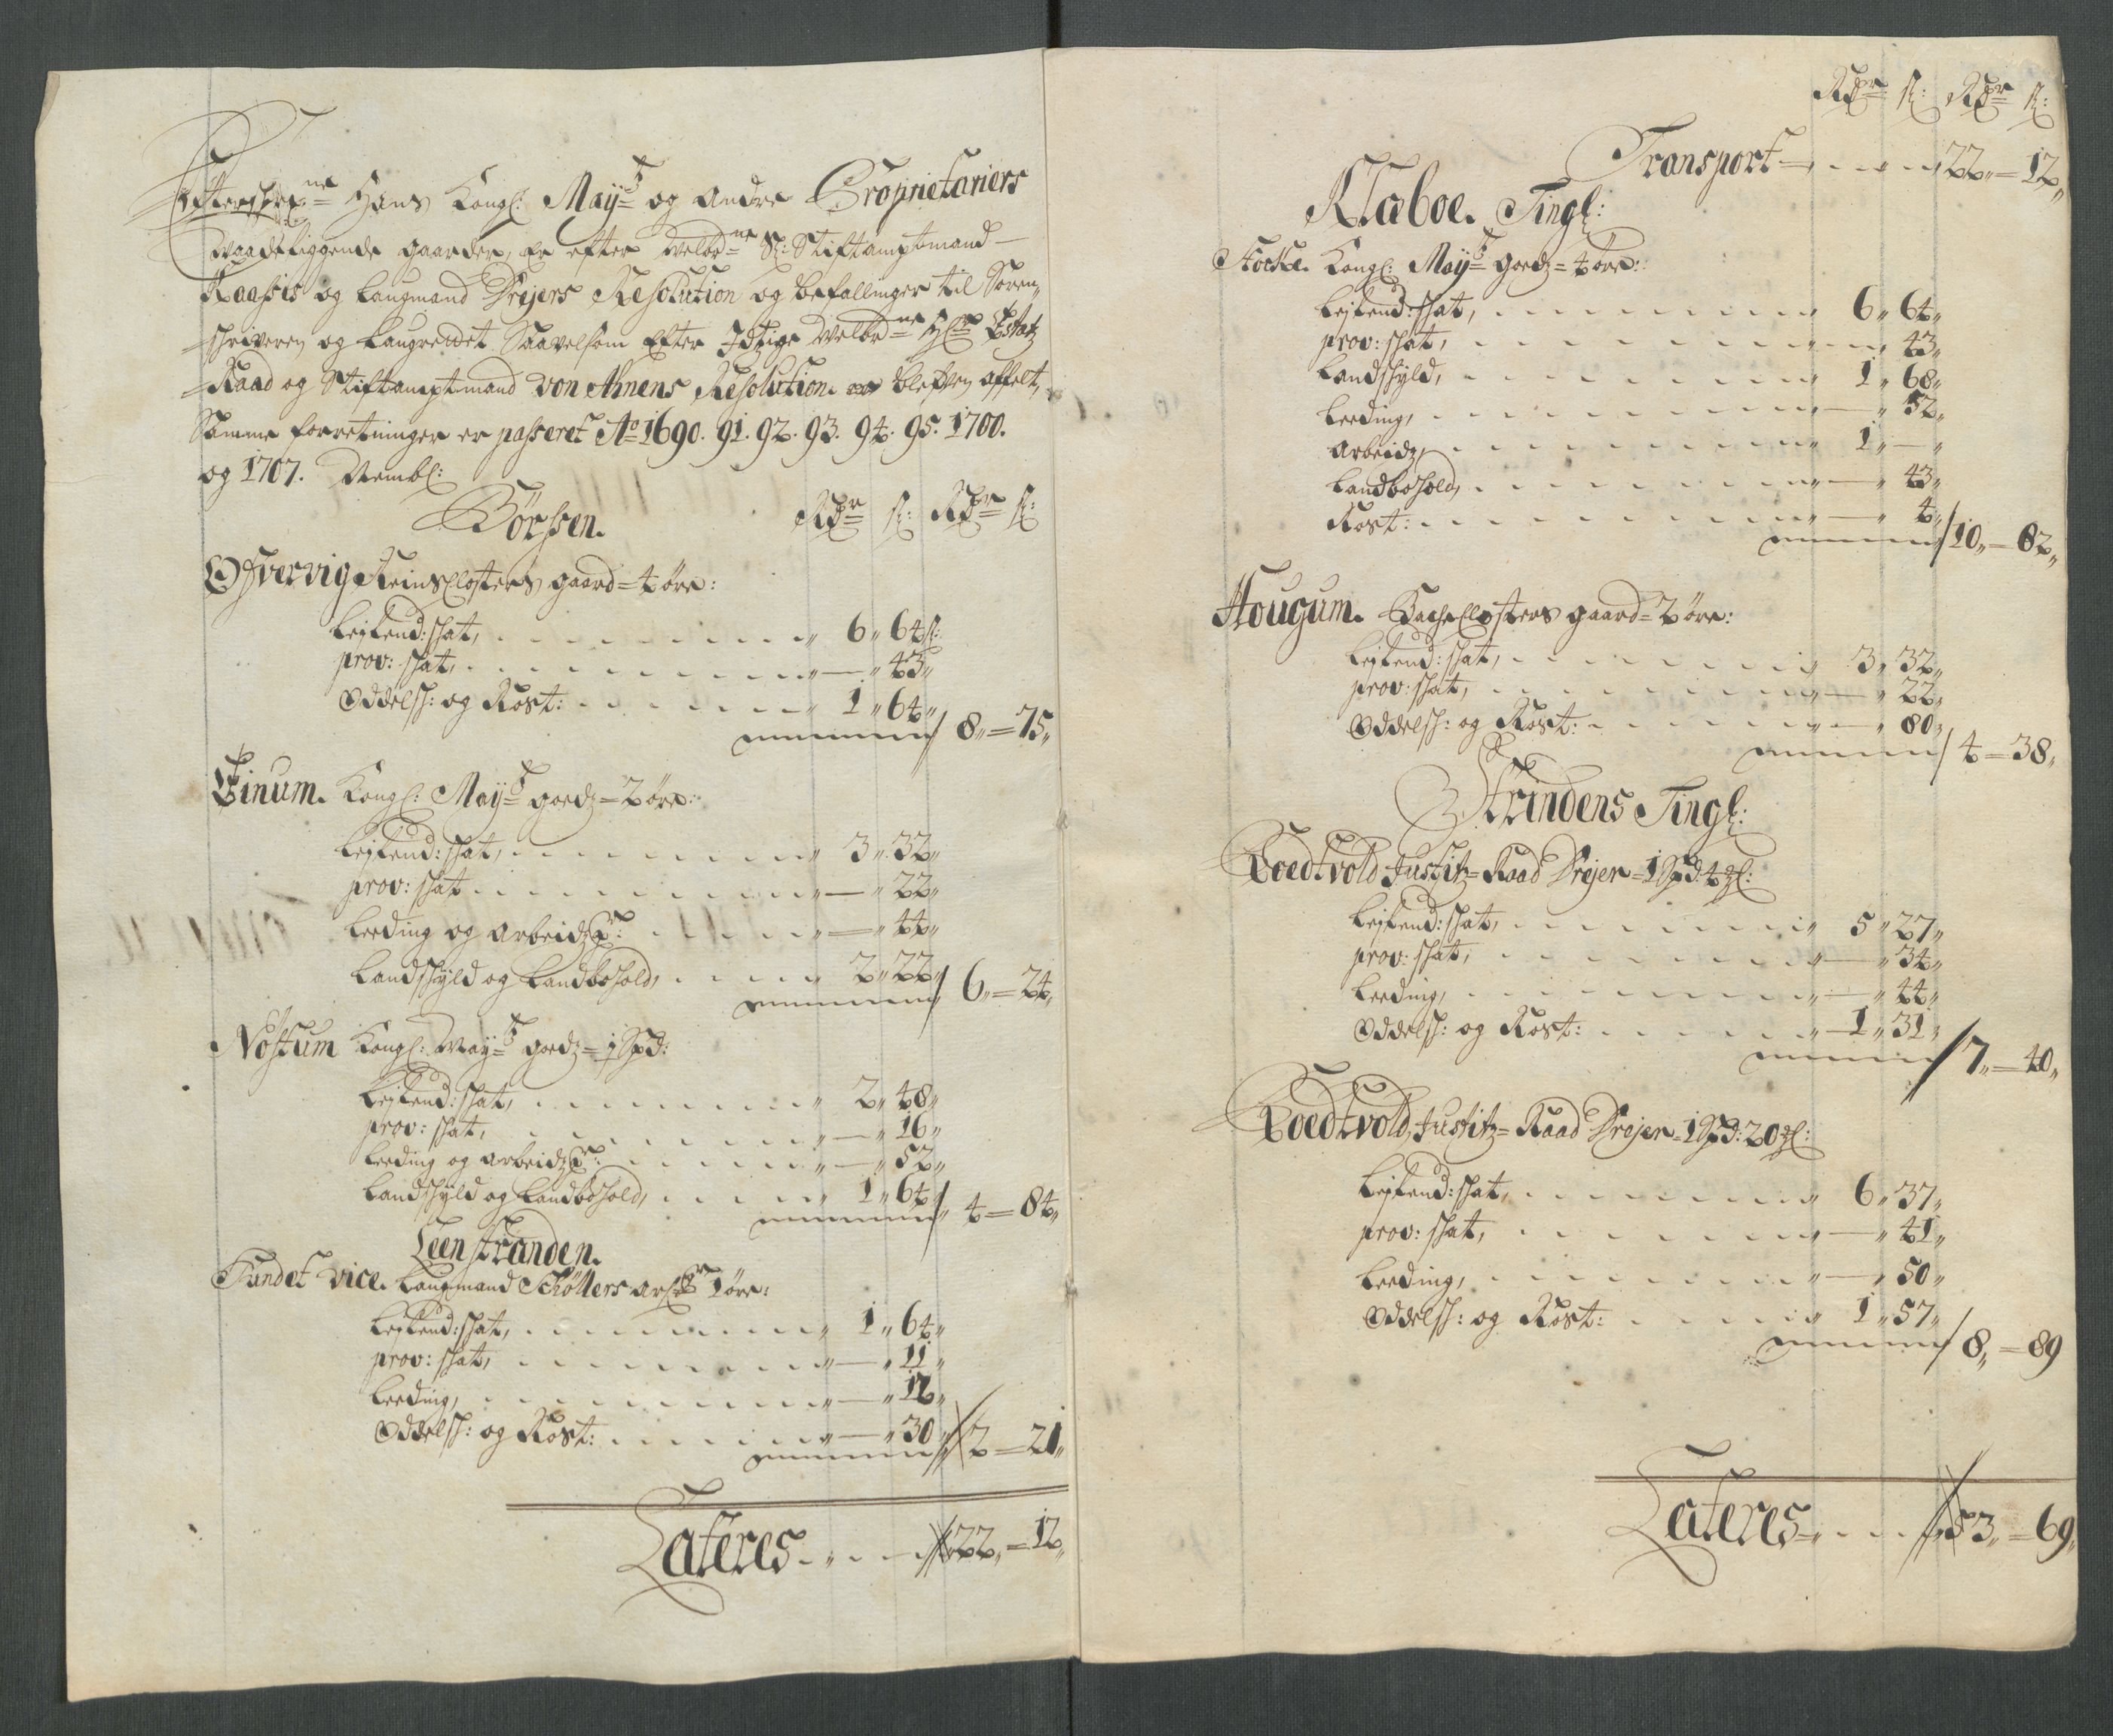 Efterschrefne Hans Kongl: Mayts og andre Proprietariers
Vaadeliggende gaarder, er efter Welbrne Sl: Stiftamptmand
Kaassis og Laugmand Drejers Resolution og befallinger til Soren-
schriveren og Laugrettet Saavelsom Efter Itzige Welbrne Hr Estatz
Raad og Stiftamptmand von Ahnens Resolution blefven affelt,
Samme forretninger er passeret Ao 1690. 91. 92. 93. 94. 95. 1700.
og 1707. Nembl:
Börssen. Rdr s: Rdr s:
Öfvervig Reinsclosters gaard = 4 øre:
Lejlend: skat, 6 " 64 s:
prov: skat, — " 43 "
Oddelsk: og Rost: 1 " 64 " / 8 " = 75 "
Einum. Kongl: Mayts goedz = 2 øre:
Lejlend: skat, 3 " 32 "
prov: skat — " 22 "
Leeding og arbeidz — " 44 "
Landskyld og Landbohold, 2 " 22 " / 6 " = 24 "
Nostum Kongl: Mayts goedz = 1 Spd:
Lejlend: skat, 2 " 48 "
prov: skat, — " 16 "
Leeding og arbeidz — " 52 "
Landskyld og Landbohold, 1 " 64 " / 4 = 84 "
Leenstranden.
Sundet vice. Laugmand Schöllers 1 øre:
Lejlend: skat, 1 " 64 "
prov: skat, — " 11 "
Leeding, — " 12 "
Oddelsk: og Rost: — " 30 " / 2 = 21 "
Lateres 22 " = 12 "
Rdr s: Rdr s:
Transport 22 " = 12 "
Klæboe. Tingl:
Stocke. Kongl: Mayts goedz = 4 øre:
Lejlend: skat, 6 " 64 "
prov: skat, — " 43 "
Landskyld, 1 " 68 "
Leeding, — " 52 "
Arbeidz, 1 " — "
Landbohold, — " 43 "
Rost: — " 4 " / 10 " = 82 "
Hougum. Bache Closters gaard = 2 øre:
Lejlend: skat, 3 " 32 "
prov: skat, — " 22 "
Oddelsk: og Rost: — " 80 " / 4 = 38 "
Strindens Tingl:
Boedtvold Justitz = Raad Drejer = 1 Spd: 4 ml:
Lejlend: skat, 5 " 27 "
prov: skat, — " 34 "
Leeding, — " 44 "
Oddelsk: og Rost: 1 " 31 " / 7 " = 40 "
Boedtvold, Justitz = Raad Drejer = 1 Spd: 20 ml:
Lejlend: skat, 6 " 37 "
prov: skat, — " 41 "
Leeding, — " 50 "
Oddelsk: og Rost: 1 " 57 " / 8 " = 89
Lateres 53 " = 69 "